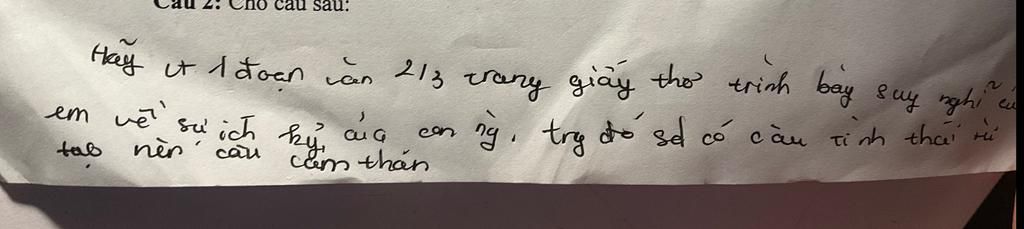 Câu 2: Cho câu sau:
Hãy vt 1 đoạn văn 2/3 trang giấy thơ trình bày suy nghĩ củ
em về sự ích kỷ của con ng, trg đó sd có câu tình thái từ
tạo nên câu cảm thán